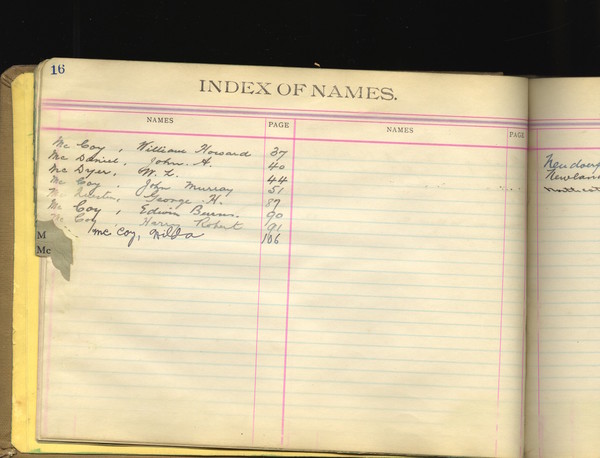 16
INDEX OF NAMES.
NAMES PAGE NAMES PAGE
Mc Coy, William Howard 37
Mc Daniel, John A. 40
Mc Dyer, W. L. 44
Mc Coy, John Murray 51
George H. 87
Mc Coy, Edwin Burns. 90
Mc Coy Harry Robert 91
Mc Coy, Wilda 106
M
Mc